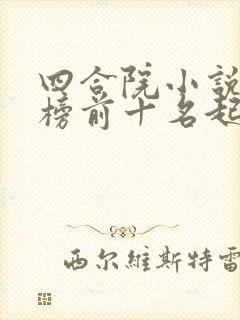 四合院小說
榜前十名起
西尔維斯特雷